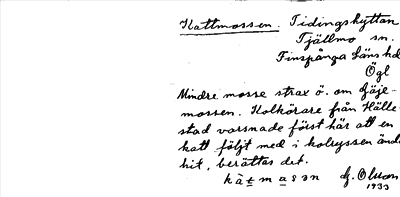 Kattmossen. Tidingshyttan
Tjällmo sn.
Finspånga Läns hd
Ögl
Mindre mosse strax ö. om Göje-
mossen. Kolkörare från Hälle-
stad varsnade först här att en
katt följt med i kolryssen ända
hit, berättas det.
kàtmasən G. Olson
1933